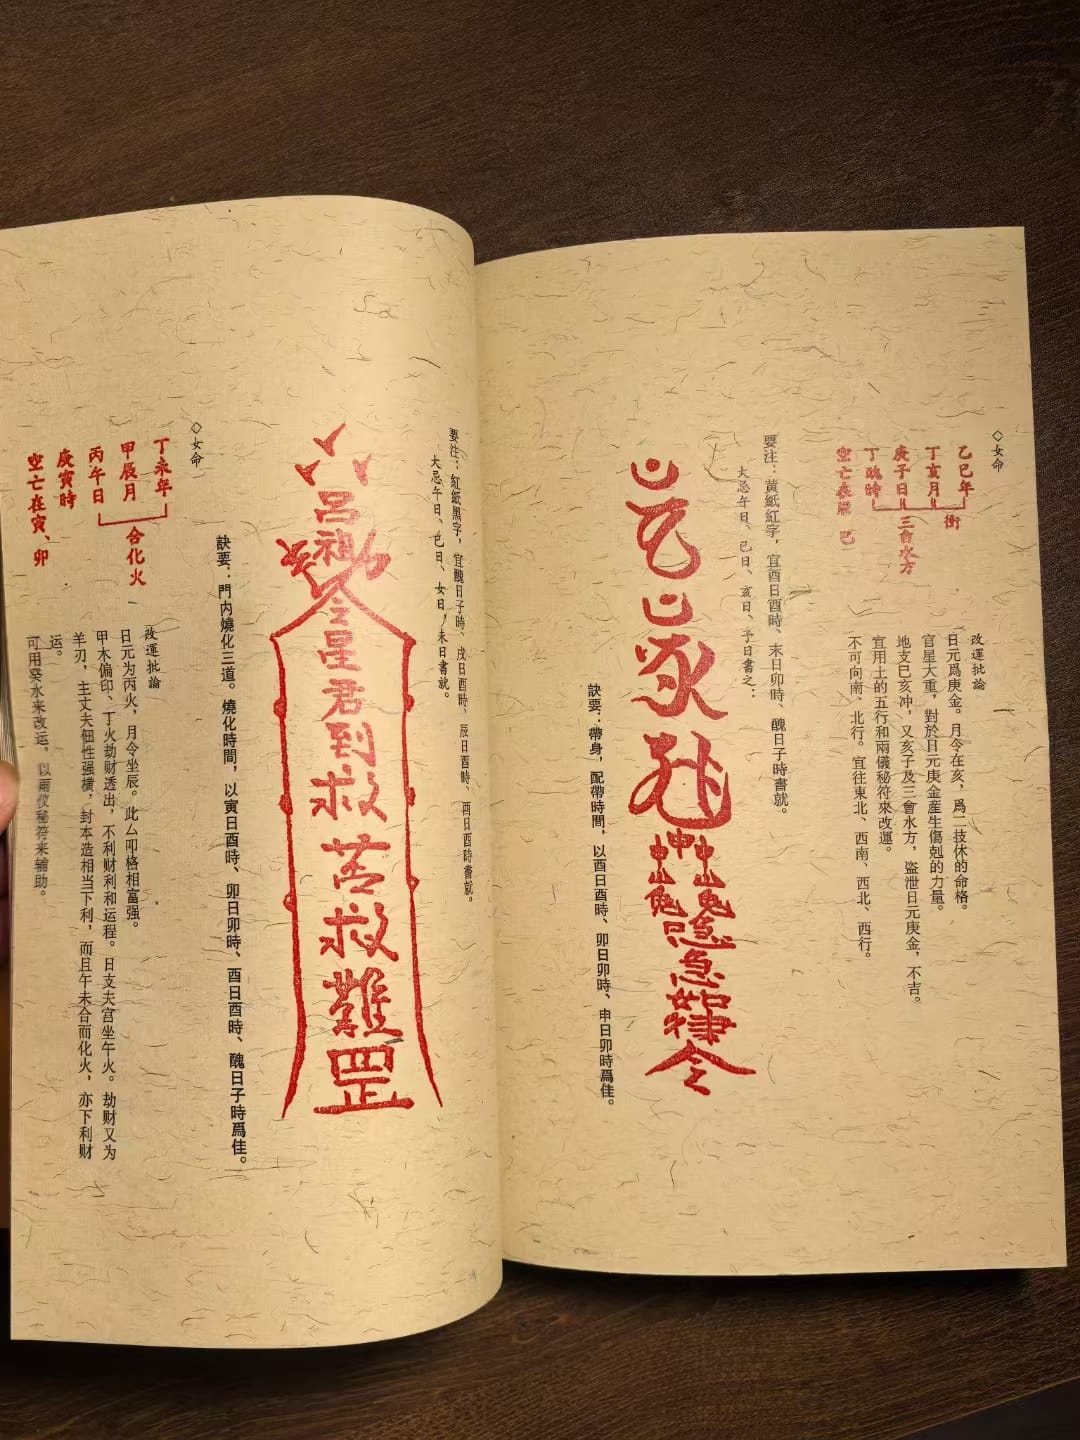 ◇女命
乙巳年
丁亥月
庚子日
丁醜時
空亡在辰 巳
衝
三會水方
改運批論
日元爲庚金。月令在亥，爲二技休的命格。
官星大重，對於日元庚金産生傷剋的力量。
地支巳亥冲，又亥子及三會水方，盜泄日元庚金，不吉。
宜用土的五行和兩儀秘符來改運。
不可向南、北行。宜往東北、西南、西北、西行。
要注：黄紙紅字，宜酉日酉時、末日卯時、醜日子時書就。
大忌午日、巳日、亥日、予日書之：
隐急如律令
訣要：帶身，配帶時間，以酉日酉時、卯日卯時、申日卯時爲佳。
要注：紅紙黑字，宜醜日子時、戌日酉時、辰日酉時、酉日酉時書就。
大忌午日、巳日、女日，未日書就。
呂祖
之星君到救苦救難罡
訣要：門内燒化三道。燒化時間，以寅日酉時、卯日卯時、酉日酉時、醜日子時爲佳。
◇女命
丁未年
甲辰月
丙午日
庚寅時
空亡在寅、卯
合化火
改運批論
日元为丙火，月令坐辰。此厶叩格相富强。
甲木偏印、丁火劫财透出，不利财利和运程。日支夫宫坐午火。劫财又为
羊刃，主丈夫佃性强横，封本造相当下利，而且午未合而化火，亦下利财
运。
可用癸水来改运，以兩仪秘符来辅助。